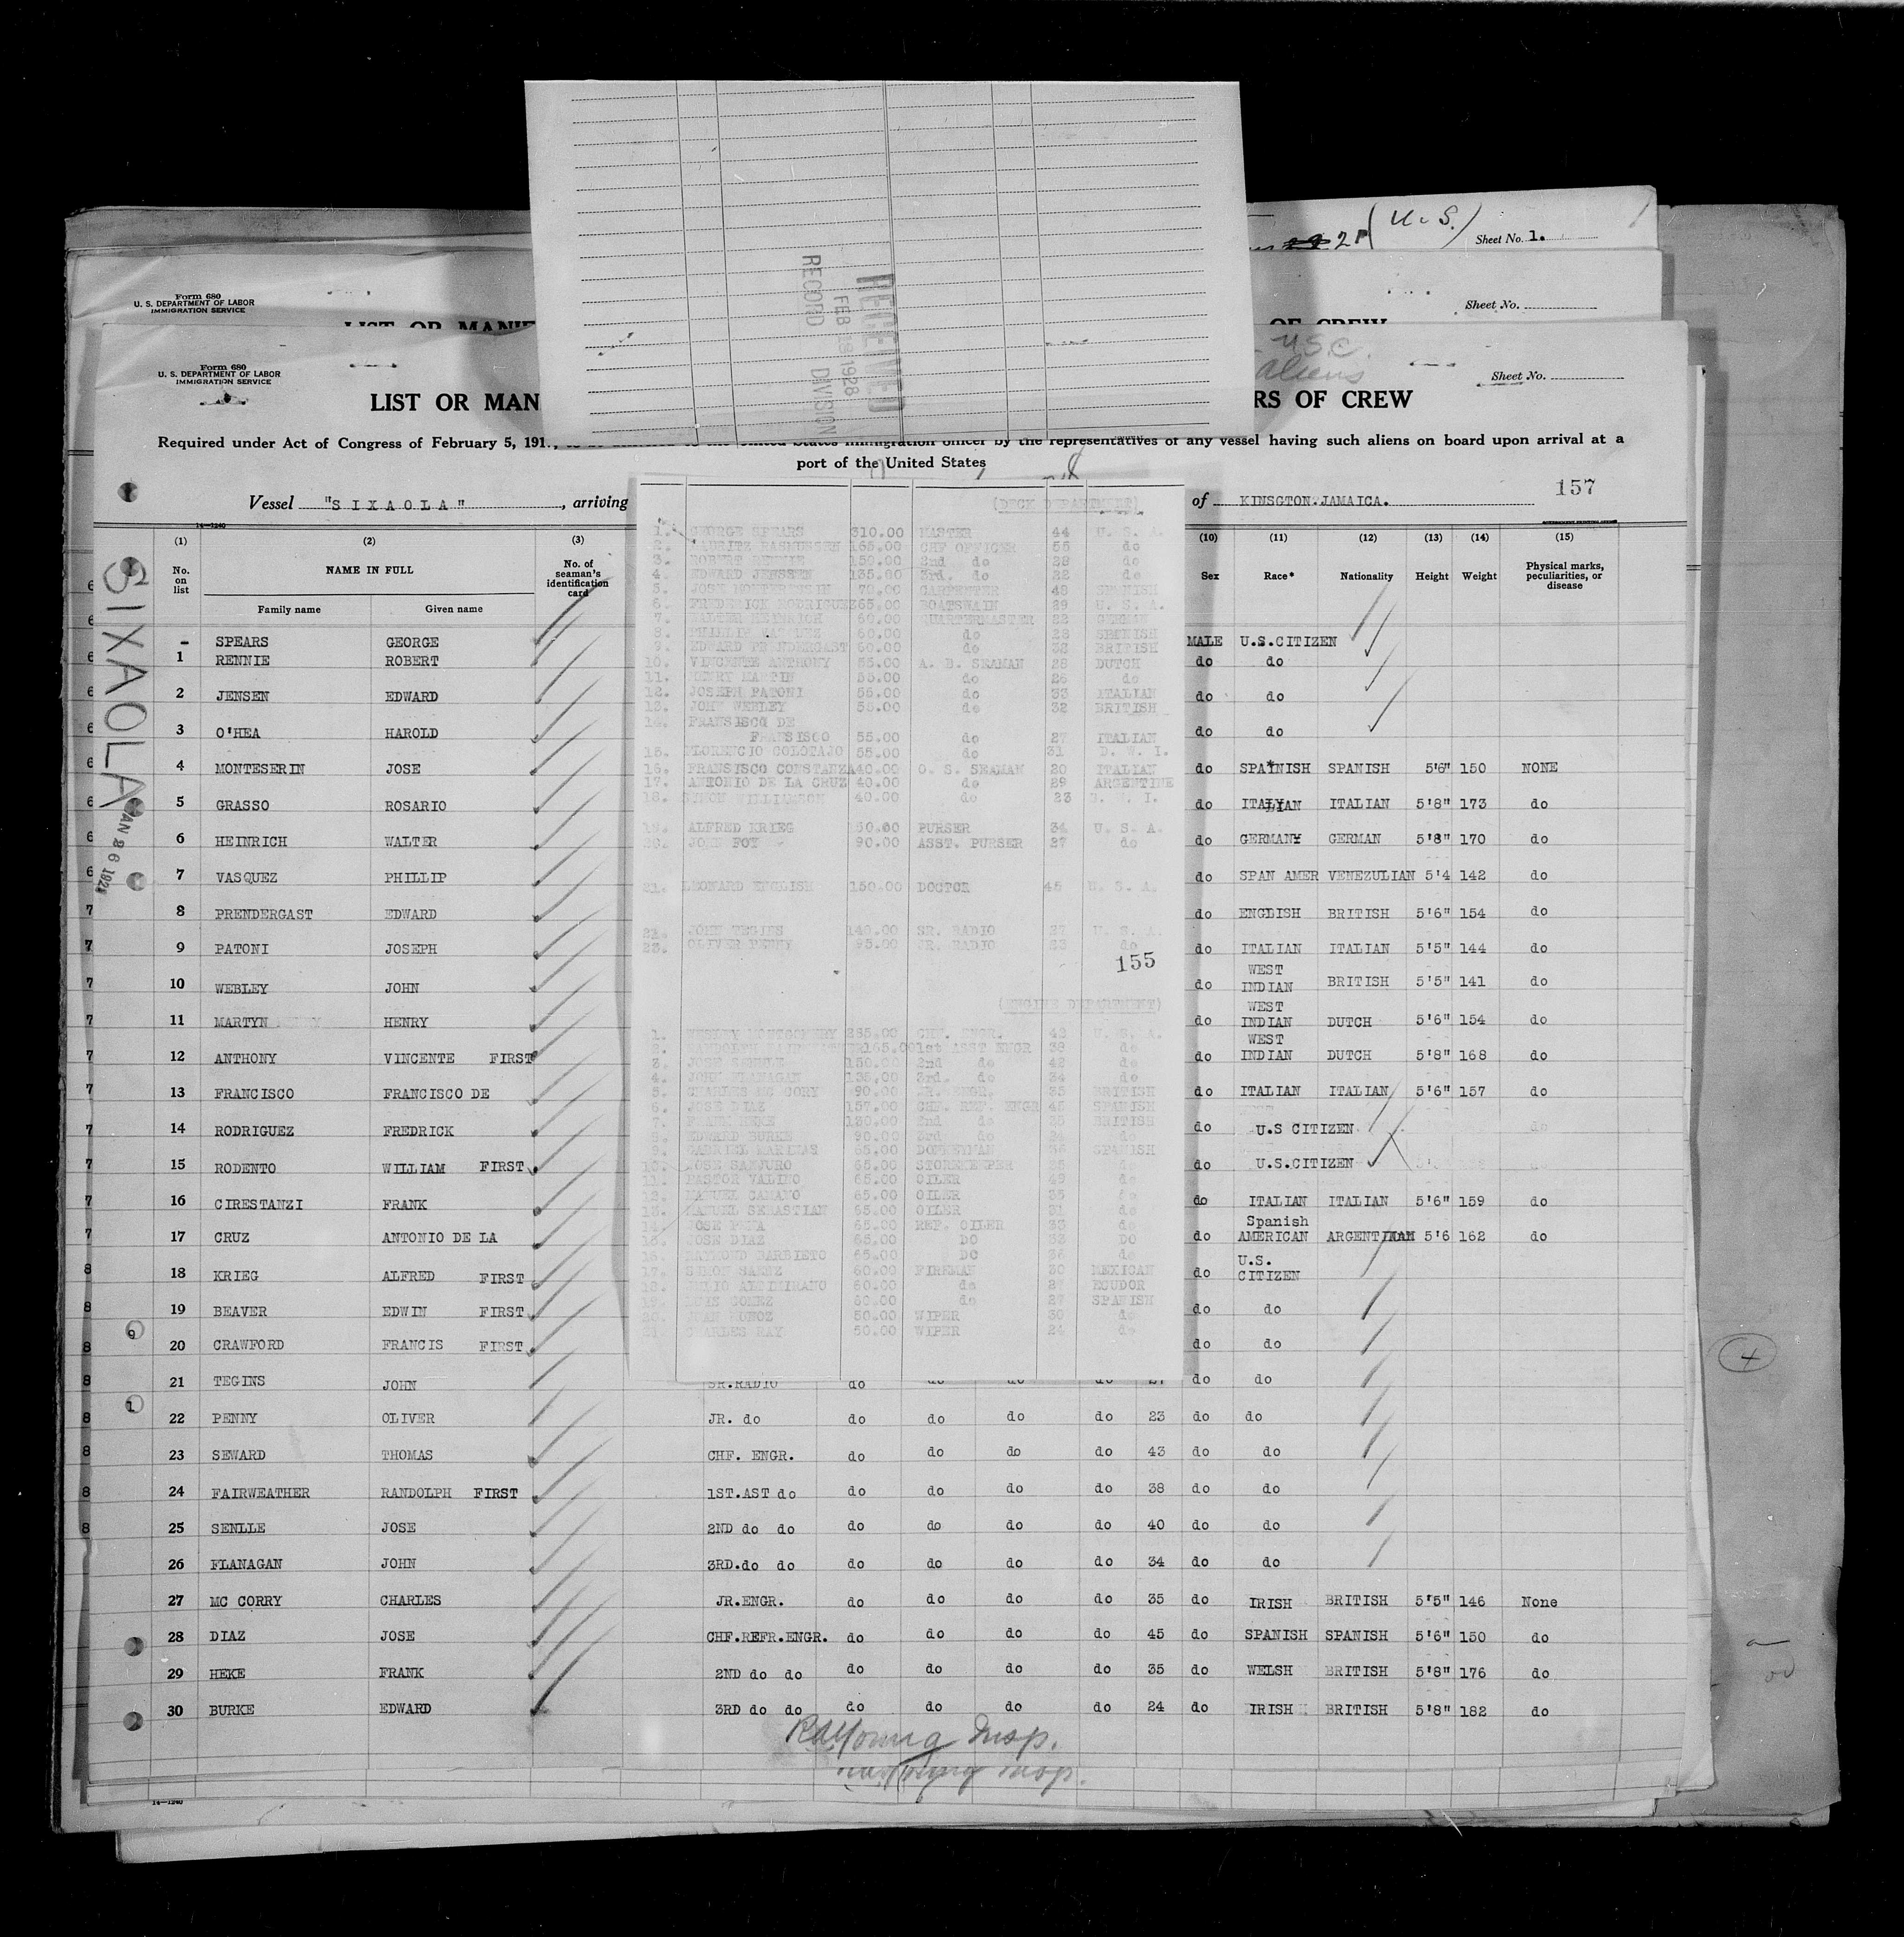 RECEIVED
FEB 1928
RECORD DIVISION
(U.S.)
Sheet No. 1.
Form 680
U. S. DEPARTMENT OF LABOR
IMMIGRATION SERVICE
Sheet No.
OF CREW
U.S.C.
aliens
Form 680
U. S. DEPARTMENT OF LABOR
IMMIGRATION SERVICE
Sheet No.
LIST OR MAN RS OF CREW
Required under Act of Congress of February 5, 191 United States immigration officer by the representatives of any vessel having such aliens on board upon arrival at a
port of the United States
157
Vessel "SIXAOLA", arriving of KINSGTON.JAMAICA.
14—1240
SIXAOLA
(1) (2) (3) (10) (11) (12) (13) (14) (15)
No. on list NAME IN FULL No. of seaman's identification card Sex Race* Nationality Height Weight Physical marks, peculiarities, or disease
Family name Given name
- SPEARS GEORGE MALE U.S.CITIZEN
1 RENNIE ROBERT do do
2 JENSEN EDWARD do do
3 O'HEA HAROLD do do
4 MONTESERIN JOSE do SPANISH SPANISH 5'6" 150 NONE
5 GRASSO ROSARIO do ITALIAN ITALIAN 5'8" 173 do
6 HEINRICH WALTER do GERMANY GERMAN 5'8" 170 do
7 VASQUEZ PHILLIP do SPAN AMER VENEZULIAN 5'4 142 do
8 PRENDERGAST EDWARD do ENGLISH BRITISH 5'6" 154 do
9 PATONI JOSEPH do ITALIAN ITALIAN 5'5" 144 do
10 WEBLEY JOHN do WEST INDIAN BRITISH 5'5" 141 do
11 MARTYN HENRY do WEST INDIAN DUTCH 5'6" 154 do
12 ANTHONY VINCENTE FIRST do WEST INDIAN DUTCH 5'8" 168 do
13 FRANCISCO FRANCISCO DE do ITALIAN ITALIAN 5'6" 157 do
14 RODRIGUEZ FREDRICK do U.S CITIZEN
15 RODENTO WILLIAM FIRST do U.S.CITIZEN
16 CIRESTANZI FRANK do ITALIAN ITALIAN 5'6" 159 do
17 CRUZ ANTONIO DE LA do Spanish AMERICAN ARGENTINAN 5'6 162 do
18 KRIEG ALFRED FIRST do U.S. CITIZEN
19 BEAVER EDWIN FIRST do do
20 CRAWFORD FRANCIS FIRST do do
21 TEGINS JOHN SR.RADIO do do do do 27 do do
22 PENNY OLIVER JR. do do do do do 23 do do
23 SEWARD THOMAS CHF. ENGR. do do do do 43 do do
24 FAIRWEATHER RANDOLPH FIRST 1ST.AST do do do do do 38 do do
25 SENLLE JOSE 2ND do do do do do do 40 do do
26 FLANAGAN JOHN 3RD.do do do do do do 34 do do
27 MC CORRY CHARLES JR.ENGR. do do do do 35 do IRISH BRITISH 5'5" 146 None
28 DIAZ JOSE CHF.REFR.ENGR. do do do do 45 do SPANISH SPANISH 5'6" 150 do
29 HEKE FRANK 2ND do do do do do do 35 do WELSH BRITISH 5'8" 176 do
30 BURKE EDWARD 3RD do do do do do do 24 do IRISH BRITISH 5'8" 182 do
Insp.
Insp.
14—1240
(DECK DEPARTMENT)
1. GEORGE SPEARS 310.00 MASTER 44 U. S. A.
2. LAURITZ RASMUSSEN 165.00 CHF OFFICER 55 do
3. ROBERT RENNIE 150.00 2nd do 28 do
4. EDWARD JENSSEN 135.00 3rd. do 22 do
5. JOSE MONTERESIN 70.00 CARPENTER 48 SPANISH
6. FREDERICK RODRIGUEZ 65.00 BOATSWAIN 29 U. S. A.
7. WALTER HEINRICH 60.00 QUARTERMASTER 22 GERMAN
8. PHILLIP VASQUEZ 60.00 do 28 SPANISH
9. EDWARD PRENDERGAST 60.00 do 32 BRITISH
10. VINCENTE ANTHONY 55.00 A. B. SEAMAN 28 DUTCH
11. HENRY MARTIN 55.00 do 26 do
12. JOSEPH PATONI 55.00 do 33 ITALIAN
13. JOHN WEBLEY 55.00 do 32 BRITISH
14. FRANSISCO DE
FRANSISCO 55.00 do 27 ITALIAN
15. FLORENCIO COLOTAJO 55.00 do 31 D. W. I.
16. FRANSISCO CONSTANZA 40.00 O. S. SEAMAN 20 ITALIAN
17. ANTONIO DE LA CRUZ 40.00 do 29 ARGENTINE
18. SIMON WILLIAMSON 40.00 do 23
19. ALFRED KRIEG 150.00 PURSER 34 U. S. A.
20. JOHN FOY 90.00 ASST. PURSER 27 do
21. LEONARD ENGLISH 150.00 DOCTOR 45 U. S. A.
22. JOHN TEGINS 140.00 SR. RADIO 27 U. S. A.
23. OLIVER PENNY 95.00 JR. RADIO 23 do
155
(ENGINE DEPARTMENT)
1. MONTGOMERY 285.00 CHF. ENGR. 42 U. S. A.
2. RANDOLPH 165.00 1st ASST ENGR 38 do
3. JOSE SENLLE 150.00 2nd do 42 do
4. JOHN FLANAGAN 135.00 3rd. do 34 do
5. CHARLES MC CORY 90.00 JR. ENGR. 35 BRITISH
6. JOSE DIAZ 157.00 CHF. REF. ENGR 45 SPANISH
7. FRANK HEKE 130.00 2nd do 35 BRITISH
8. EDWARD BURKE 90.00 3rd do 24 do
9. GABRIEL 65.00 DONKEYMAN 36 SPANISH
10. JOSE SANJURO 65.00 STOREKEEPER 25 do
11. PASTOR VALINO 65.00 OILER 49 do
12. MANUEL CAMANO 65.00 OILER 35 do
13. MANUEL SEBASTIAN 65.00 OILER 31 do
14. JOSE PENA 65.00 REF. OILER 33 do
15. JOSE DIAZ 65.00 DO 33 DO
16. RAYMOND BARBIETO 65.00 DO 36 do
17. SIMON SAENZ 60.00 FIREMAN 30 MEXICAN
18. 60.00 do 27 ECUDOR
19. GOMEZ 60.00 do 27 SPANISH
20. JUAN MUNOZ 50.00 WIPER 30 do
21. CHARLES RAY 50.00 WIPER 24 do